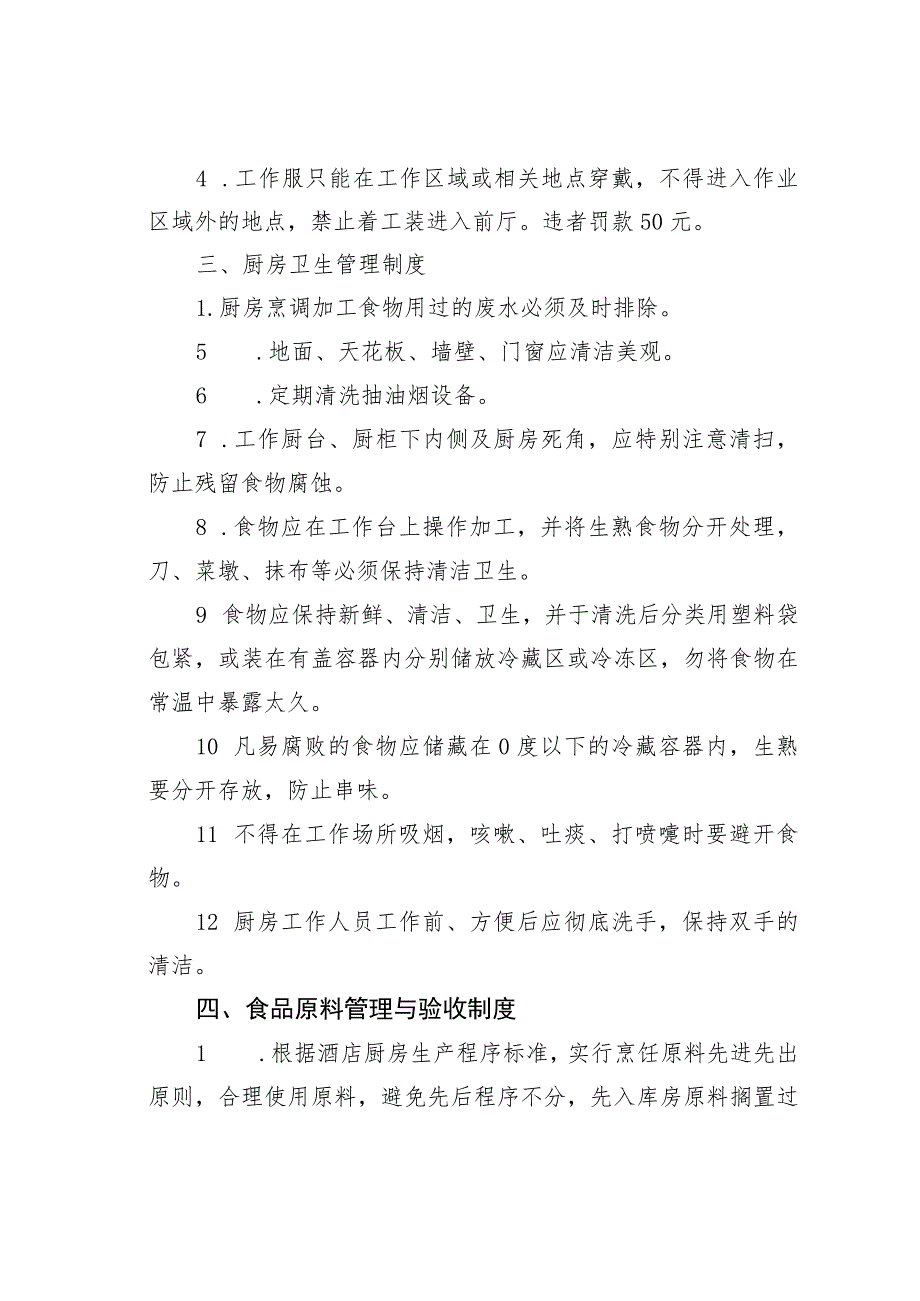 4 .工作服只能在工作区域或相关地点穿戴，不得进入作业
区域外的地点，禁止着工装进入前厅。违者罚款50元。
三、厨房卫生管理制度
1.厨房烹调加工食物用过的废水必须及时排除。
5 .地面、天花板、墙壁、门窗应清洁美观。
6 .定期清洗抽油烟设备。
7 .工作厨台、厨柜下内侧及厨房死角，应特别注意清扫，
防止残留食物腐蚀。
8 .食物应在工作台上操作加工，并将生熟食物分开处理，
刀、菜墩、抹布等必须保持清洁卫生。
9 食物应保持新鲜、清洁、卫生，并于清洗后分类用塑料袋
包紧，或装在有盖容器内分别储放冷藏区或冷冻区，勿将食物在
常温中暴露太久。
10 凡易腐败的食物应储藏在0度以下的冷藏容器内，生熟
要分开存放，防止串味。
11 不得在工作场所吸烟，咳嗽、吐痰、打喷嚏时要避开食
物。
12 厨房工作人员工作前、方便后应彻底洗手，保持双手的
清洁。
四、食品原料管理与验收制度
1 .根据酒店厨房生产程序标准，实行烹饪原料先进先出
原则，合理使用原料，避免先后程序不分，先入库房原料搁置过